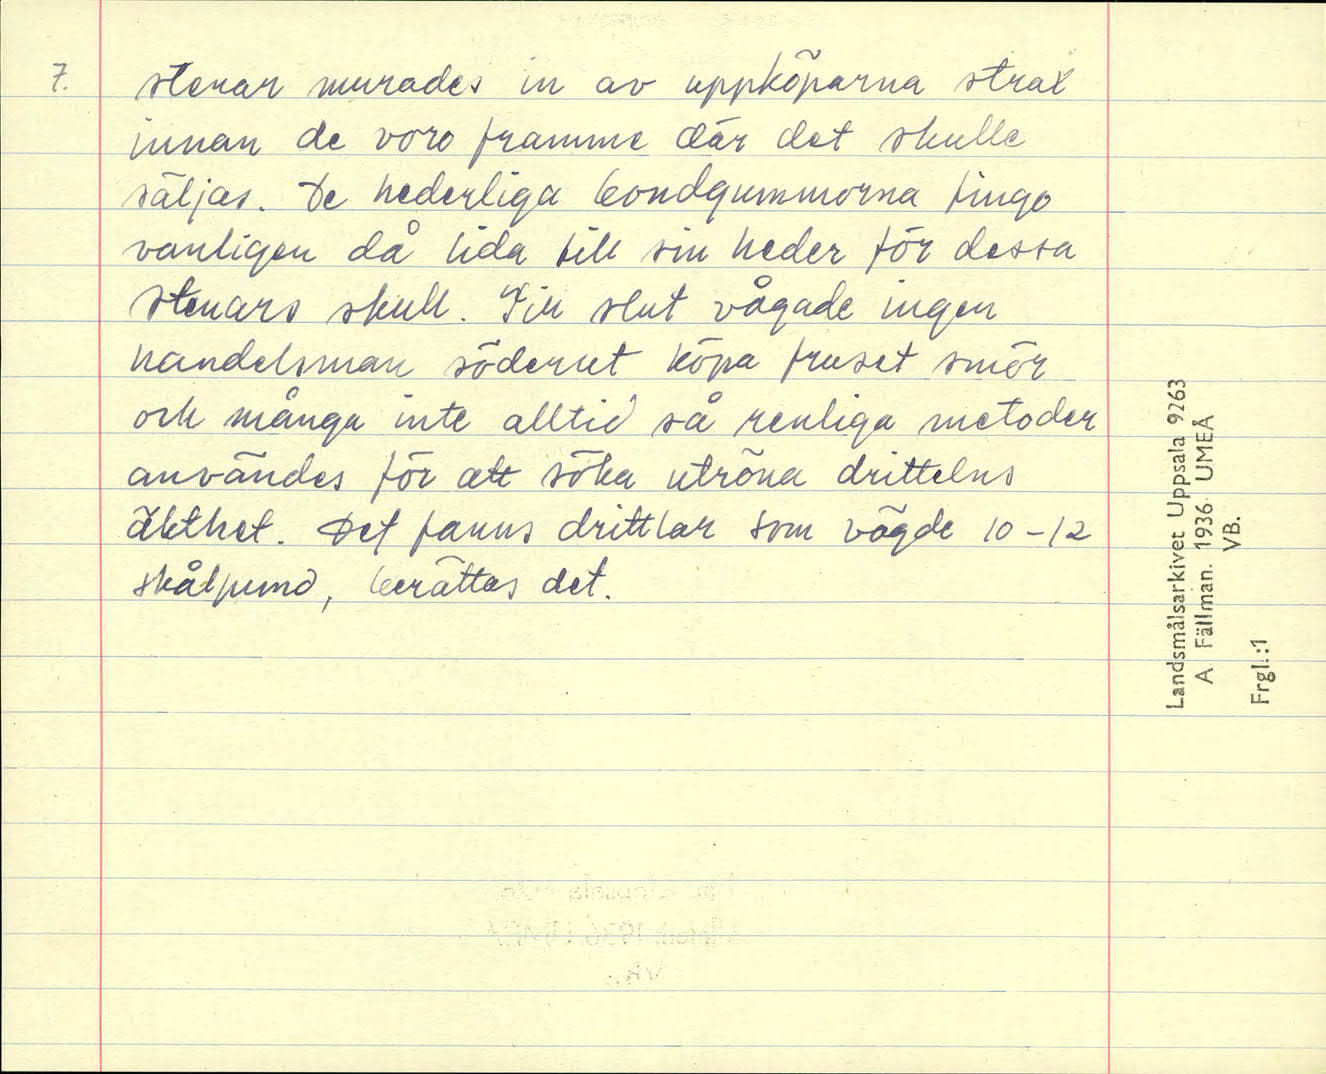 7.
stenar murades in av uppköparna strax
innan de voro framme där det skulle
säljas. De hederliga bondgummorna fingo
vanligen då lida till sin heder för dessa
stenars skull. Till slut vågade ingen
handelsman söderut köpa fruset smör
och många inte alltid så renliga metoder
användes för att söka utröna drittelns
äkthet. Det fanns drittlar som vägde 10-12
skålpund, berättas det.
Landsmålsarkivet Uppsala 9263
A Fällman. 1936. UMEÅ
VB.
Frgl.:1